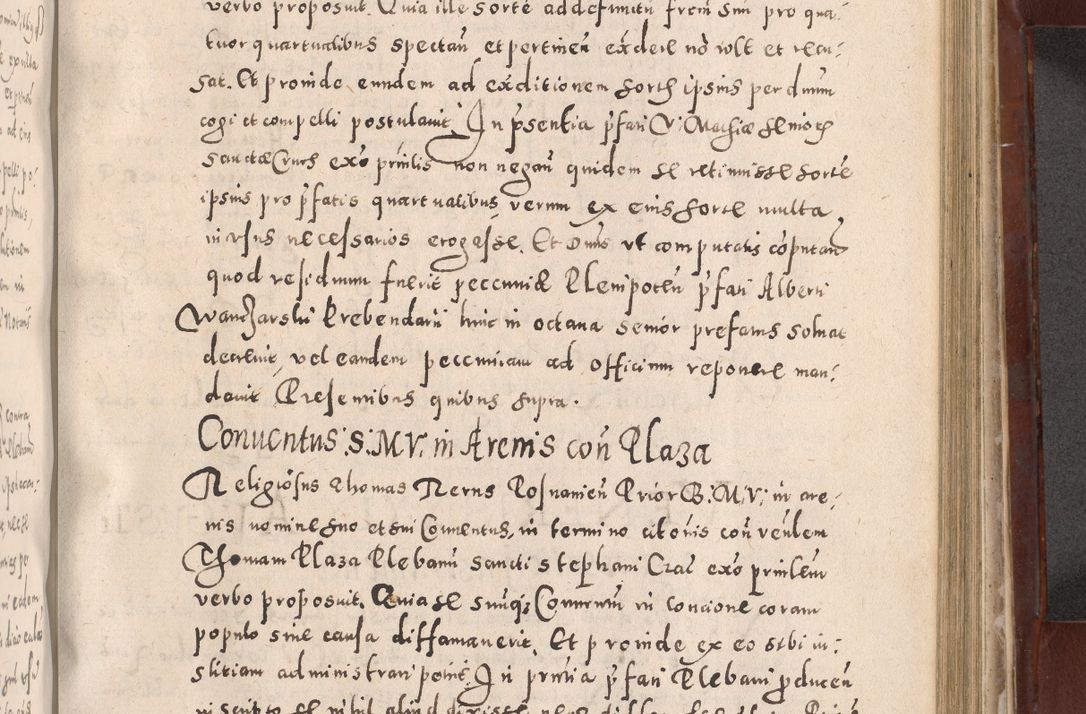 verbo proposuit. Quia ille sorte ad defunctū frem̄ sm̄ pro qua:
tuor quartualibus spectan̄ et pertinen̄ exdere nō vult et recu:
sat. Et proinde eundem ad exditionem sortis ipsius per dnum
cogi et compelli postulavit. In p̄sentia p̄fati V: Mathiæ senioris
Sanctæ Crucis exo prn̄tis non negan̄ quidem se retinuisse sorte
ipsius pro p̄fatis quartualibus, verum ex eius sorte multa
in usus necessarios erogasse. Et Dnus ut computatis cōputan̄
quod residuum fuerit peccuniæ Plenipoten̄ p̄fati Alberti
Wanczarski Prebendarii hinc in octava senior prefatus solvat
decrevit, vel eandem peccuniam ad officium reponere man:
davit Presentibus quibus supra.
Conventus S: M V: in Arenis con̄ Plaza
Religiosus Thomas Rerus Posnanien̄ Prior B: M: V: in are:
nis nomine suo et sui Conventus, in termino citōnis con̄ ven̄lem
Thomam Plaza Plebanū sancti Stephani Crac̄ exo prn̄tem
verbo proposuit. Quia se suūq; Conventū in concione coram
populo sine causa diffamaverit, Et proinde ex eo sibi iu:
stitiam administrari petiit. In prn̄tia p̄fati Plebani p̄ducen̄
in scripto se nihil aliud dixisse